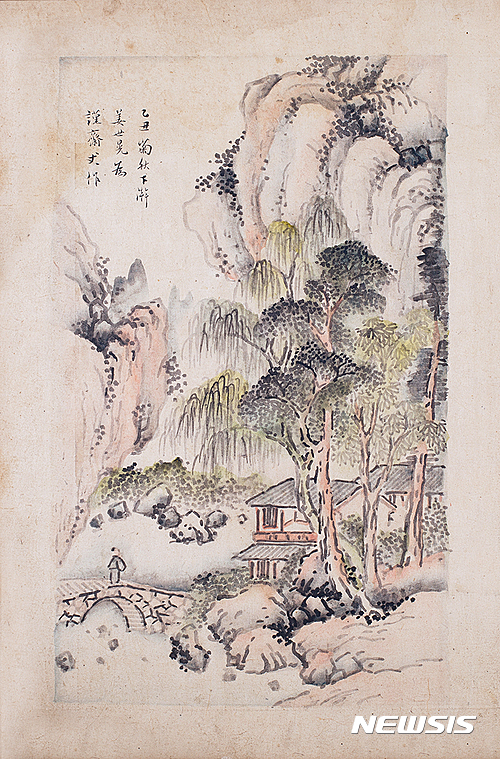 乙丑菊秋下澣
姜世晃為
謹齋丈作
NEWSIS